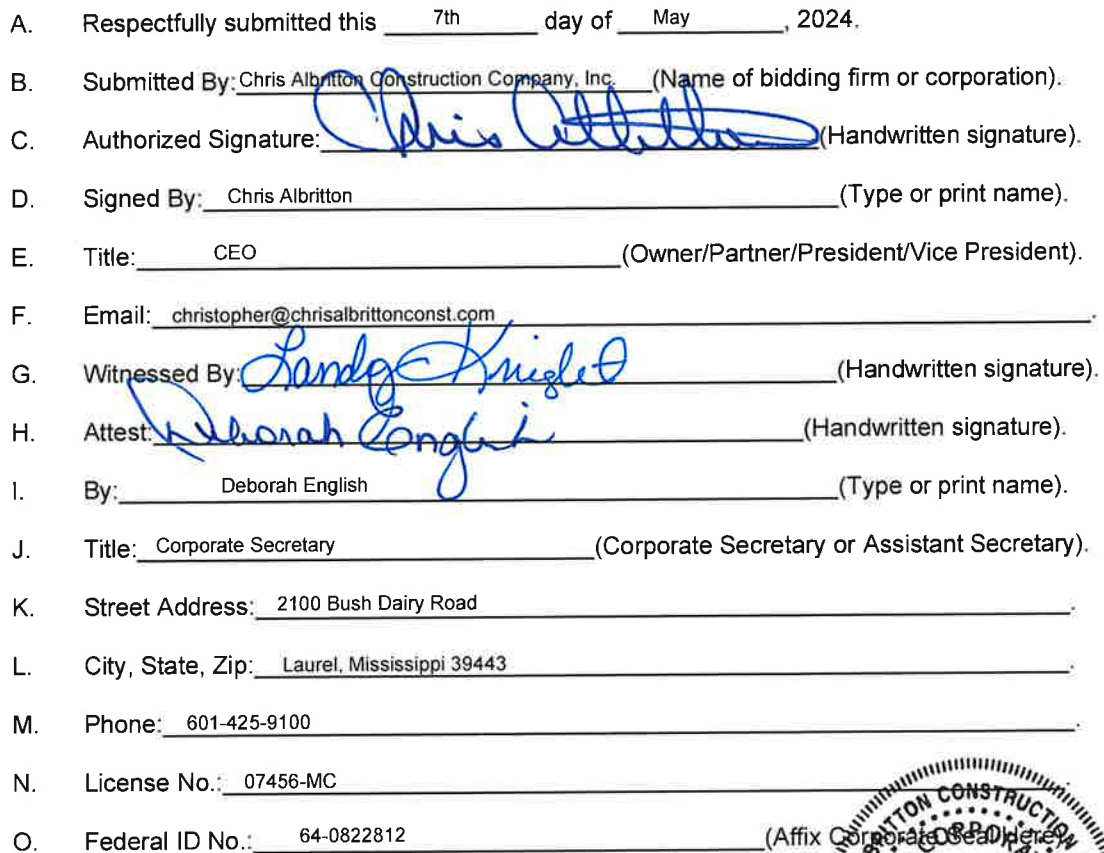 A. Respectfully submitted this 7th day of May, 2024.
B. Submitted By: Chris Albritton Construction Company, Inc. (Name of bidding firm or corporation).
C. Authorized Signature: Chris Albritton (Handwritten signature).
D. Signed By: Chris Albritton (Type or print name).
E. Title: CEO (Owner/Partner/President/Vice President).
F. Email: christopher@chrisalbrittonconst.com.
G. Witnessed By: Knight (Handwritten signature).
H. Attest: Deborah English (Handwritten signature).
I. By: Deborah English (Type or print name).
J. Title: Corporate Secretary (Corporate Secretary or Assistant Secretary).
K. Street Address: 2100 Bush Dairy Road.
L. City, State, Zip: Laurel, Mississippi 39443.
M. Phone: 601-425-9100.
N. License No.: 07456-MC.
O. Federal ID No.: 64-0822812 (Affix Corporate Seal Here).
CONSTRUCTION